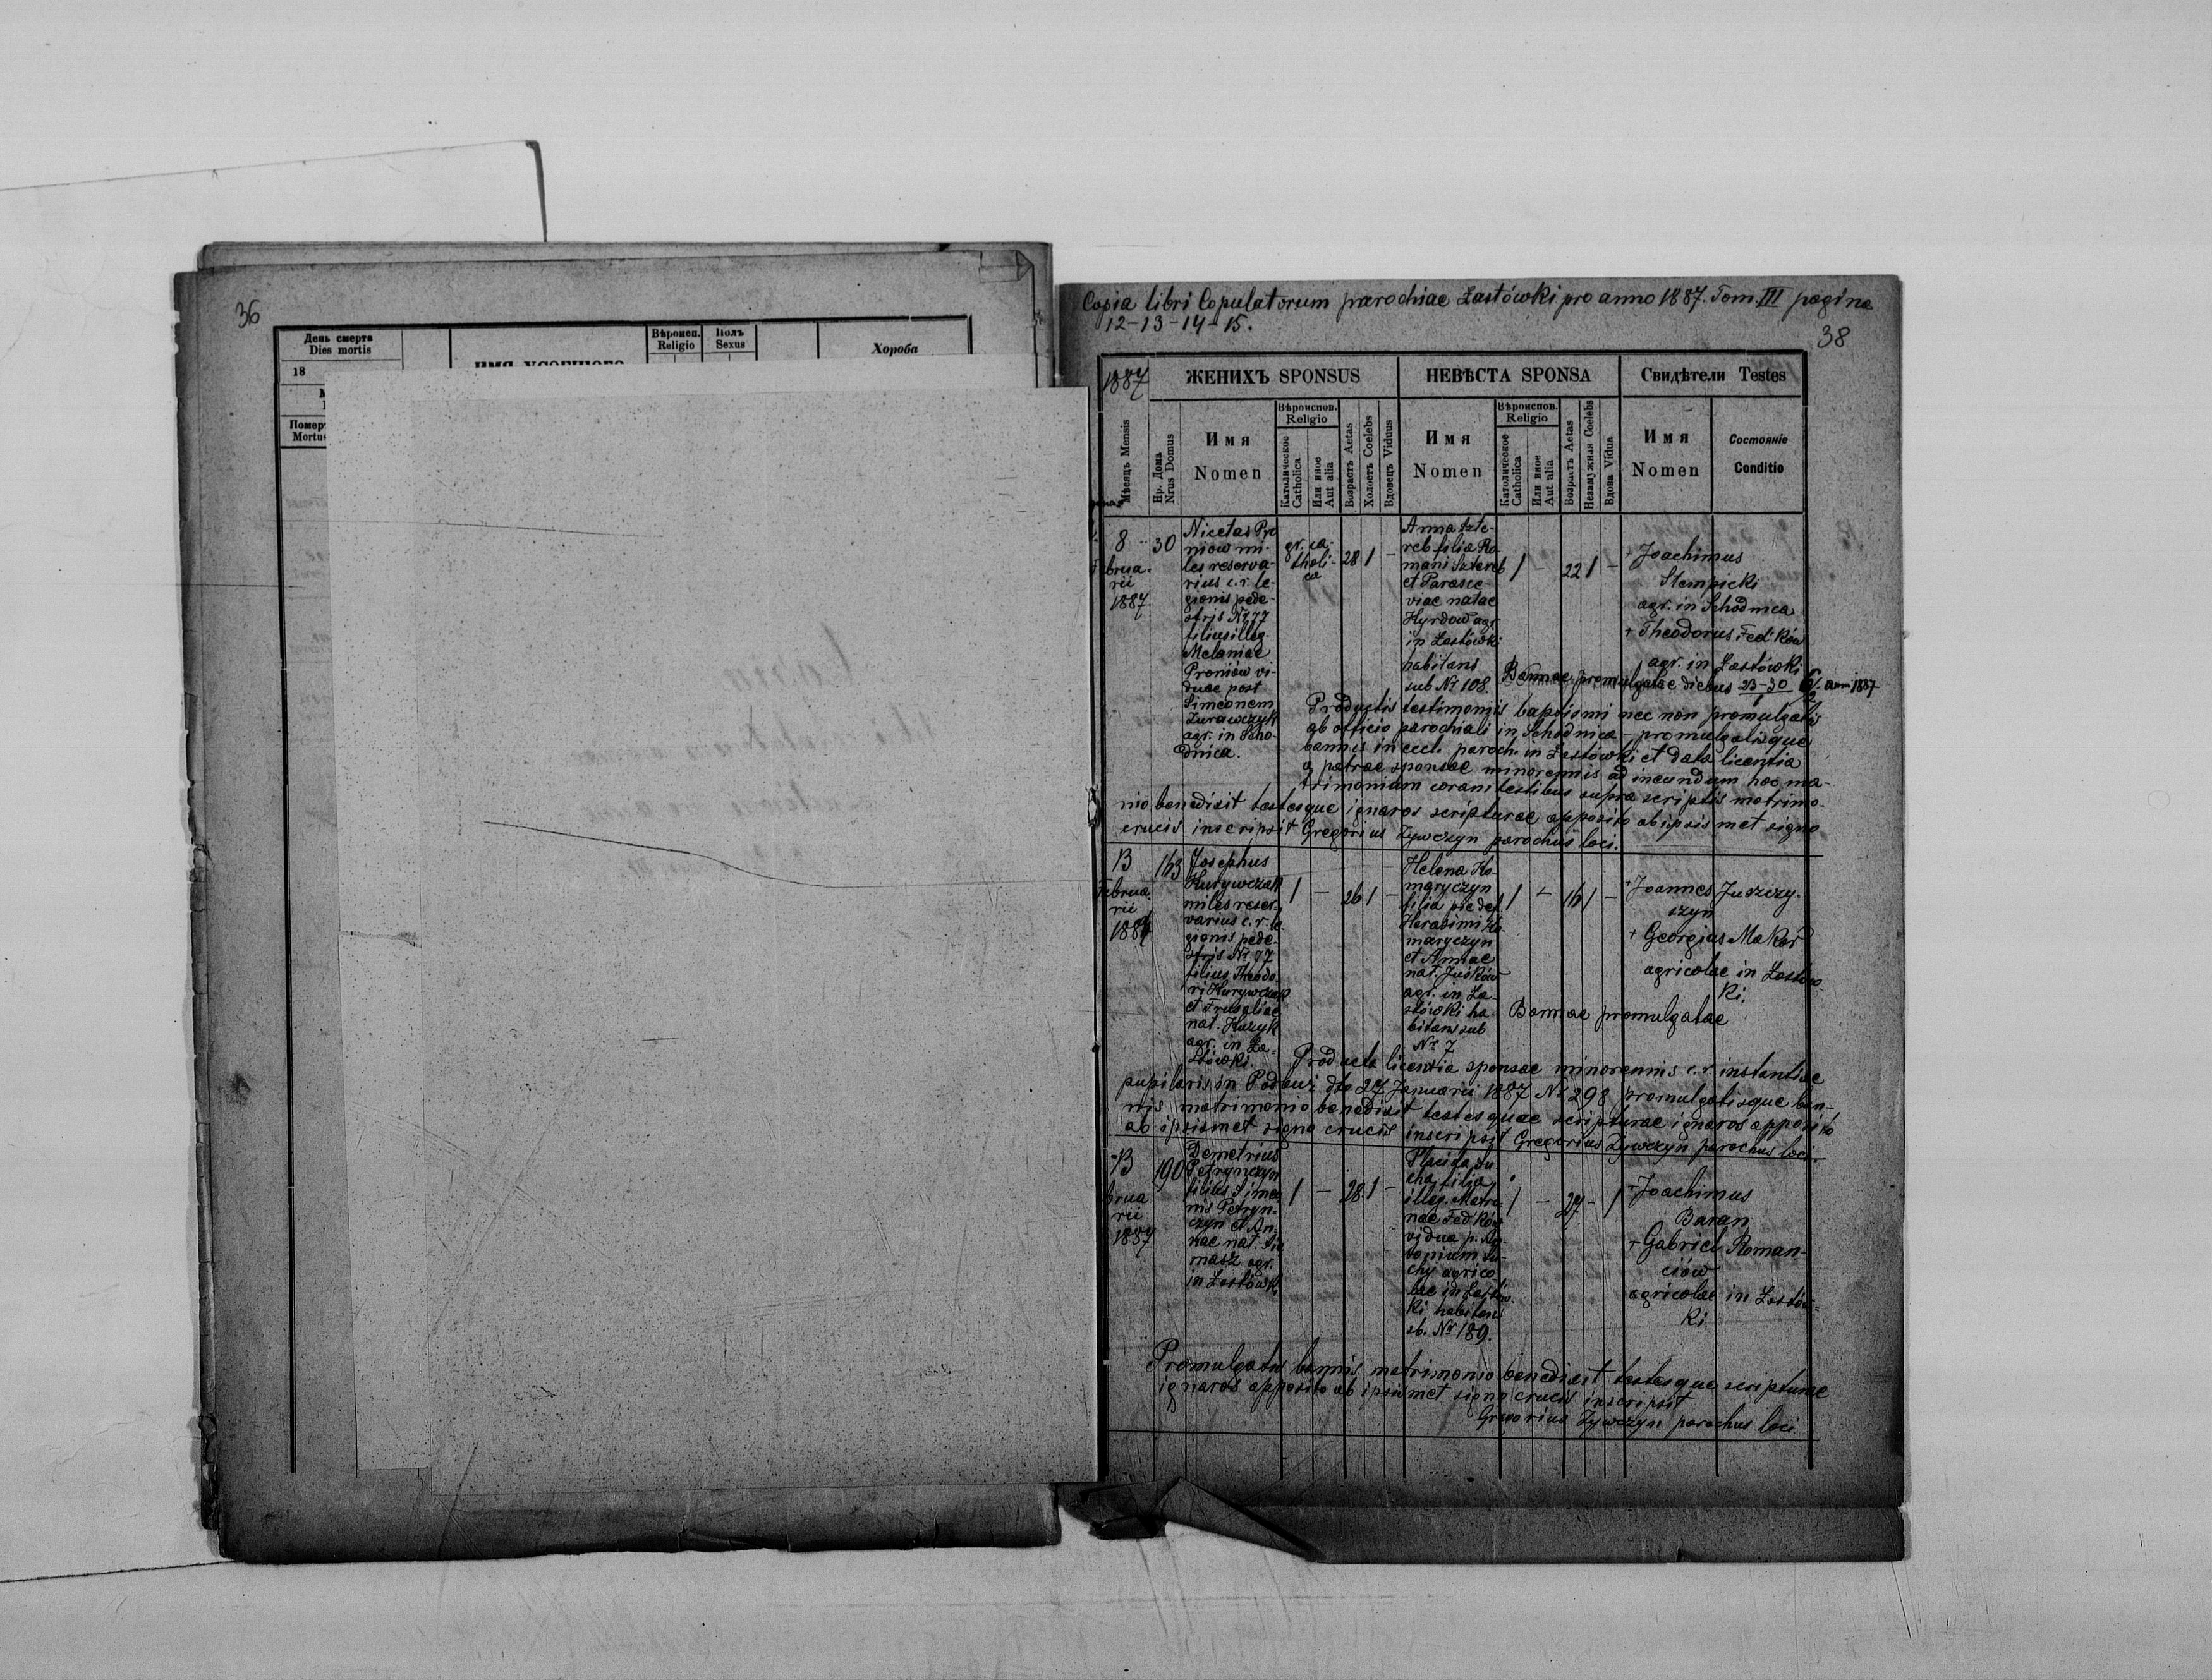 36
День смерти
Dies mortis
18
Вѣроисп.
Religio
Полъ
Sexus
Хороба
Copia libri Copulatorum parochiae Łastówki pro anno 1887. Tom. III pagina
12-13-14-15.
38
1887
ЖЕНИХЪ SPONSUS
НЕВѢСТА SPONSA
Свидѣтели Testes
Мѣсяцъ Mensis
Нр. Дома
Nrus Domus
Имя
Nomen
Вѣроиспов.
Religio
Католическое
Catholica
Или иное
Aut alia
Возрастъ Aetas
Холостъ Coelebs
Вдовецъ Viduus
Имя
Nomen
Вѣроиспов.
Religio
Католическое
Catholica
Или иное
Aut alia
Возрастъ Aetas
Незамужная Coelebs
Вдова Vidua
Имя
Nomen
Состояніе
Conditio
8
Februa-
rii
1887
30
Nicetas Pro
niow mi-
les reserva-
rius c. r. le-
gionis pede-
stris Nr 77
filius illeg.
Melaniae
Proniów vi-
duae post
Simeonem
Żurawczyk
agr. in Scho-
dnica.
gr. ca-
tholi-
ca
28 1 -
Anna Szte-
reb filia Ro-
mani Sztereb
et Parasce-
viae natae
Hyrdow agr.
in Łastówki
habitans
sub Nr 108.
1 - 22 1 -
+ Joachimus
Stempicki
agr. in Schodnica
+ Theodorus Fed'ków
agr. in Łastówki
Bannae promulgatae diebus 23-30/1 6/2. anni 1887
Productis testimoniis baptismi nec non promulgatis
ab officio parochiali in Schodnica - promulgatisque
bannis in eccl. paroch. in Łastówki et data licentia
a patrae sponsae minorennis ad ineundum hoc ma-
trimonium coram testibus supra scriptis matrimo-
nio benedixit testesque ignaros scripturae apposito ab ipsis met signo
crucis inscripsit Gregorius Żywczyn parochus loci.
13
Februa-
rii
1887
163
Josephus
Hurywczak
miles reser-
varius c. r. le-
gionis pede-
stris Nr 77
filius Theodo-
ri Hurywczak
et
nat. Huzyk
agr. in Ła-
stówki
1 - 26 1 -
Helena Ko-
maryczyn
filia pie def.
Herasimi Ko-
maryczyn
et Annae
nat. Juśków
agr. in Ła-
stówki ha-
bitans sub
Nr 7
1 - 16 1 -
+ Joannes Juszczy-
szyn
+ Georgius Makar
agricolae in Łastów-
ki.
Bannae promulgatae
Producta licentia sponsae minorennis c. r. instantiae
pupilaris in Podbuż dto 27 Januarii 1887 Nr 298 promulgatisque ban-
nis matrimonio benedixit testesquae scripturae ignaros apposito
ab ipsismet signo crucis inscripsit Gregorius Żywczyn parochus loci.
13
Februa
rii
1887
190
Demetrius
Petrynczyn
filius Simeo
nis Petryn-
czyn et An-
nae nat.
masz agr.
in Łastówki
1 - 28 1 -
Placida Su
cha filia
illeg. Matro-
nae Fed'ków
vidua p.
Su-
chy agrico
lae in Łastów-
ki habitans
sb. Nr 189.
1 - 27 - 1
+ Joachimus
Baran
+ Gabriel Roman-
ciów
agricolae in Łastów-
ki
Promulgatis bannis matrimonio benedixit testesque scripturae
ignaros apposito ab ipsismet signo crucis inscripsit
Gregorius Żywczyn parochus loci